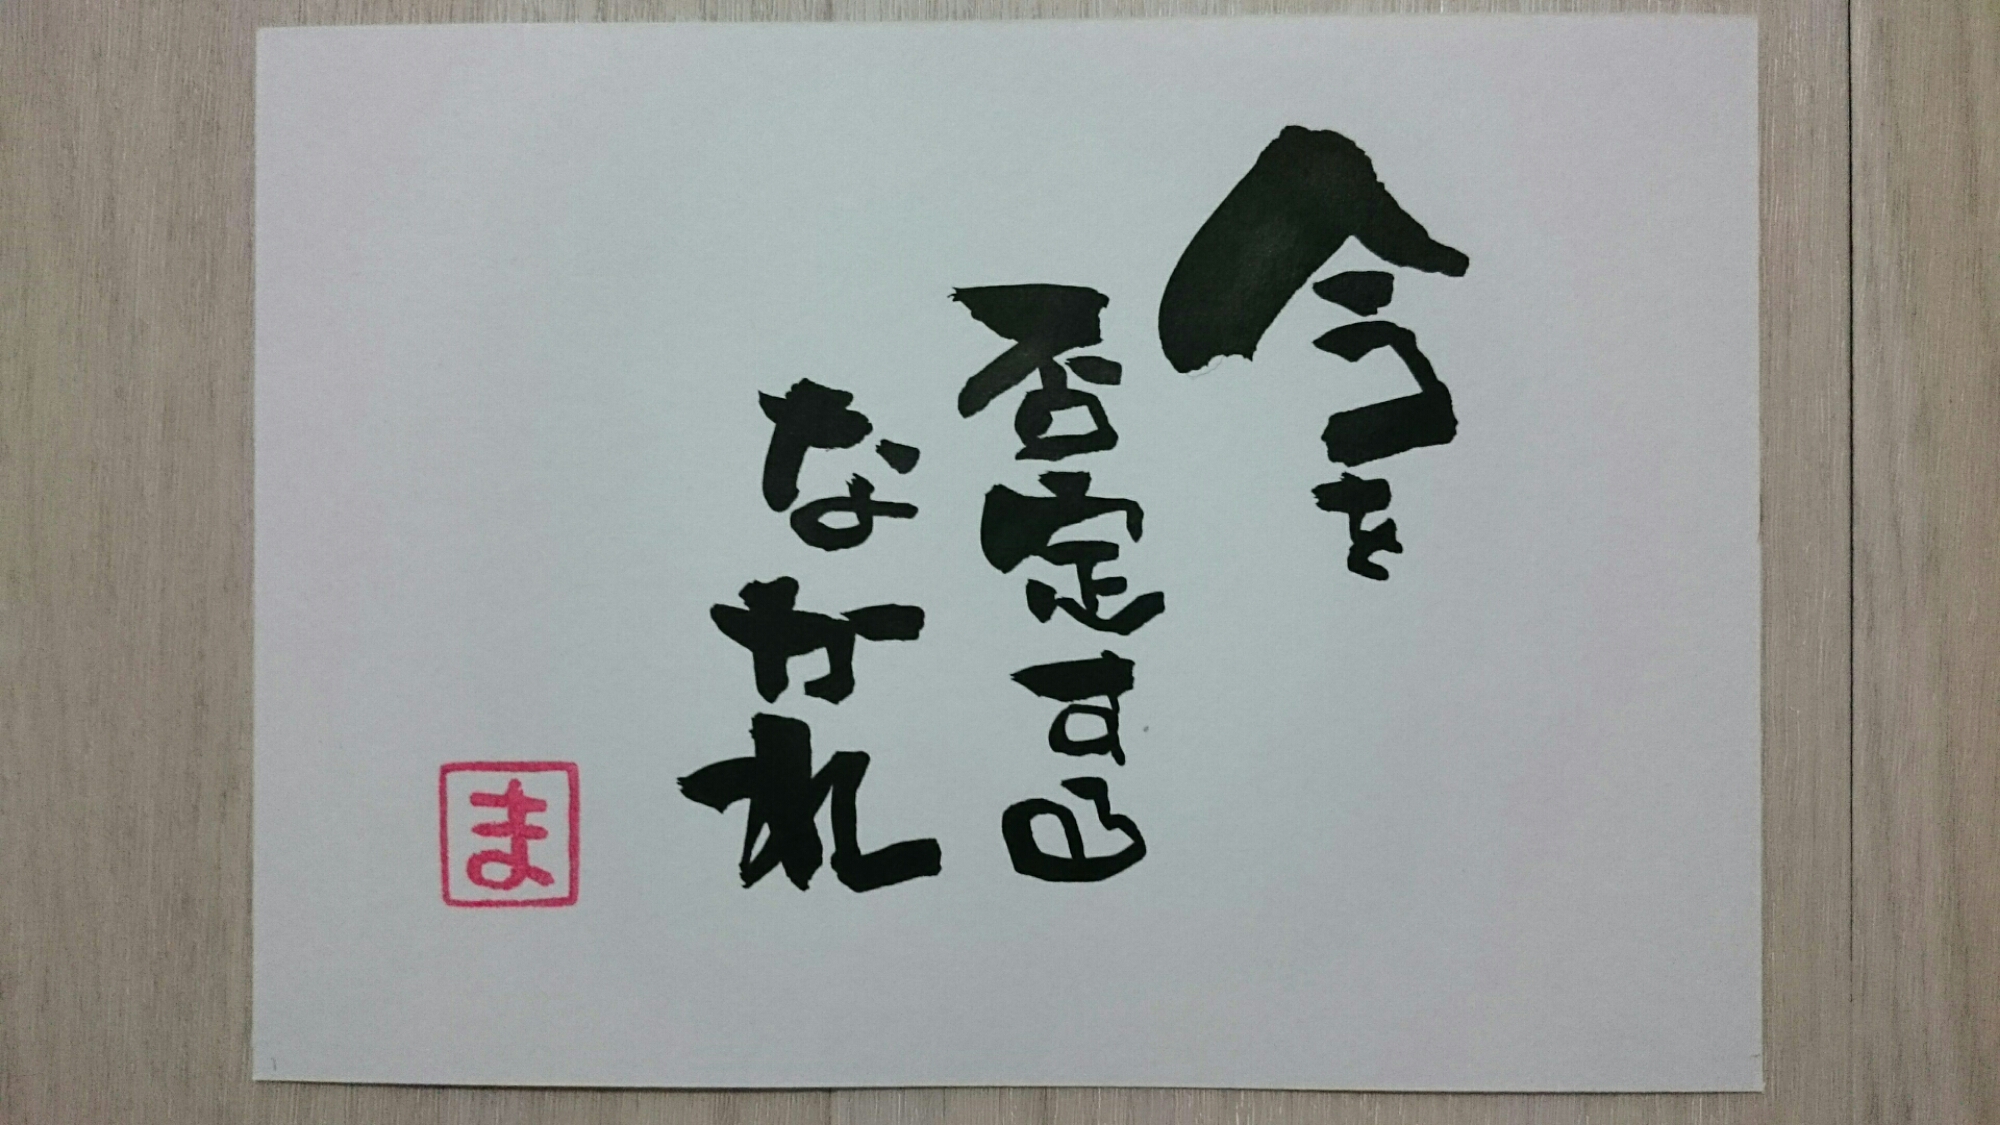 今を
否定する
なかれ
ま